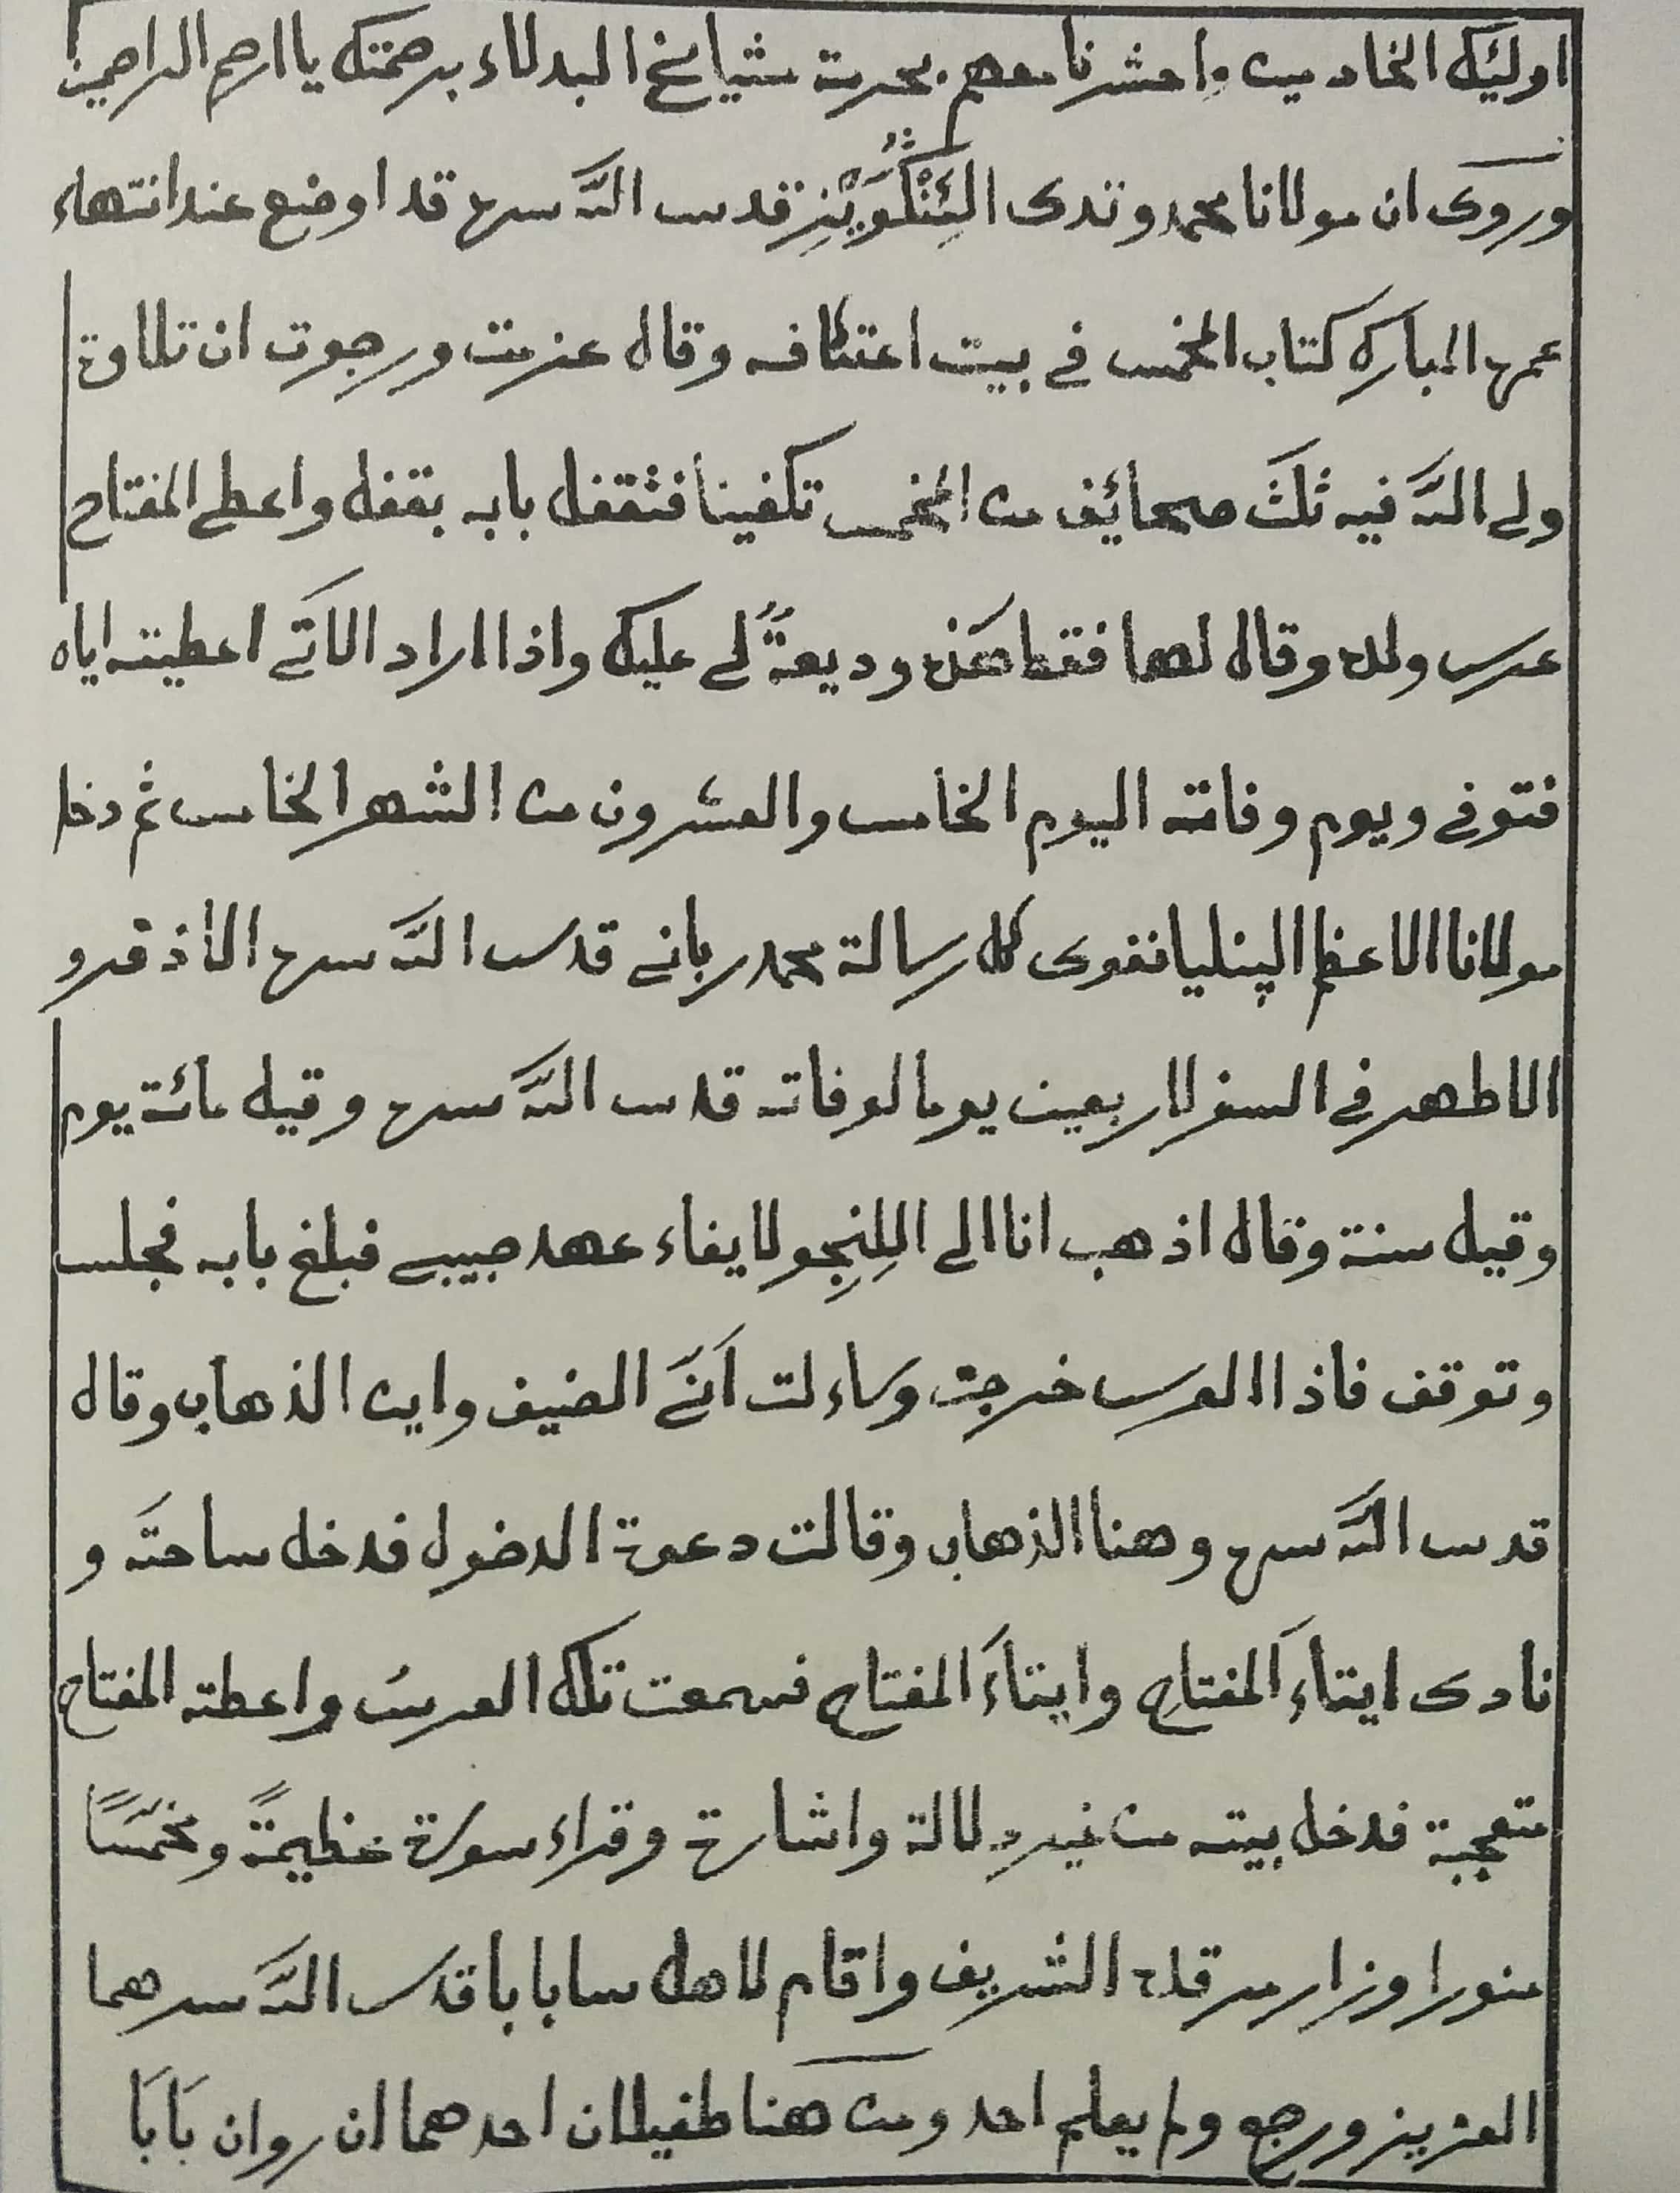 اولئك الخادمين واحشرنا معهم بحرمة مشيائخ البدلاء برحمتك يا ارحم الراحمين
وروى ان مولانا محمد وتدى قدس الله سره قد اوضع عند انتهاء
عمره المبارك كتاب المخمس في بيت اعتكافه وقال عزمت ورجوت ان تلاوة
ولى الله فيه ثلث صحائف من المخمس تكفينا فثقفل بابه بقفل واعطى المفتاح
عرس ولده وقال لها فقط هذه وديعةً لى عليك واذا اراد الآتى اعطيته اياه
فتوفى ويوم وفاته اليوم الخامس والعشرون من الشهر الخامس ثم دخل
مولانا الاعظم الپنليانفوى كل رسالة محمد ربانى قدس الله سره الاذفر و
الاطهر في السفر لاربعين يوما لوفاته قدس الله سره وقيل مائة يوم
وقيل سنة وقال اذهب انا الى اللِنِجو لايفاء عهد حبيبى فبلغ بابه فجلس
وتوقف فاذا العرس خرجت وساءلت اَنَّى الضيف واين الذهاب وقال
قدس الله سره وهنا الذهاب وقالت دعوة الدخول فدخل ساحتَه و
نادى ايتاءَ المفتاحِ وايتاءَ المفتاحِ فسمعت تلك العرسُ واعطته المفتاح
متعجبة فدخل بيته من غير دلالة واشارة وقراء سورة عظيمةً ومخمَّسًا
منورا وزار مرقده الشريف واقام لاهل سابابا قدس الله سرهما
العزيز ورجع ولم يعلم احد ومن هنا طفيلان احدهما ان روان بَابَا